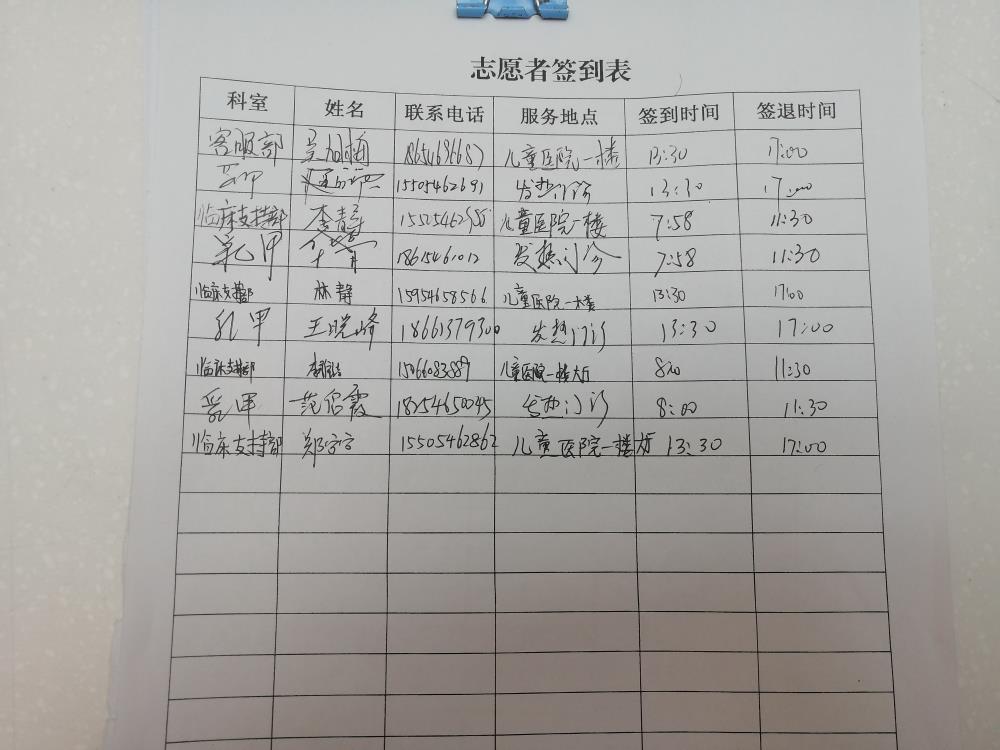 志愿者签到表
科室 姓名 联系电话 服务地点 签到时间 签退时间
客服部 18654696687 儿童医院一楼 13:30 17:00
15505462691 发热门诊 13:30 17:00
临床支持部 李青 儿童医院一楼 7:58 11:30
乳甲 18615461012 发热门诊 7:58 11:30
临床支持部 林静 15954658566 儿童医院一楼 13:30 17:00
乳甲 王晓峰 18661379300 发热门诊 13:30 17:00
临床支持部 15066083889 儿童医院一楼大厅 11:30
乳甲 范启霞 18254650045 发热门诊 8:00 11:30
临床支持部 郑字字 15505462862 儿童医院一楼大厅 13:30 17:00